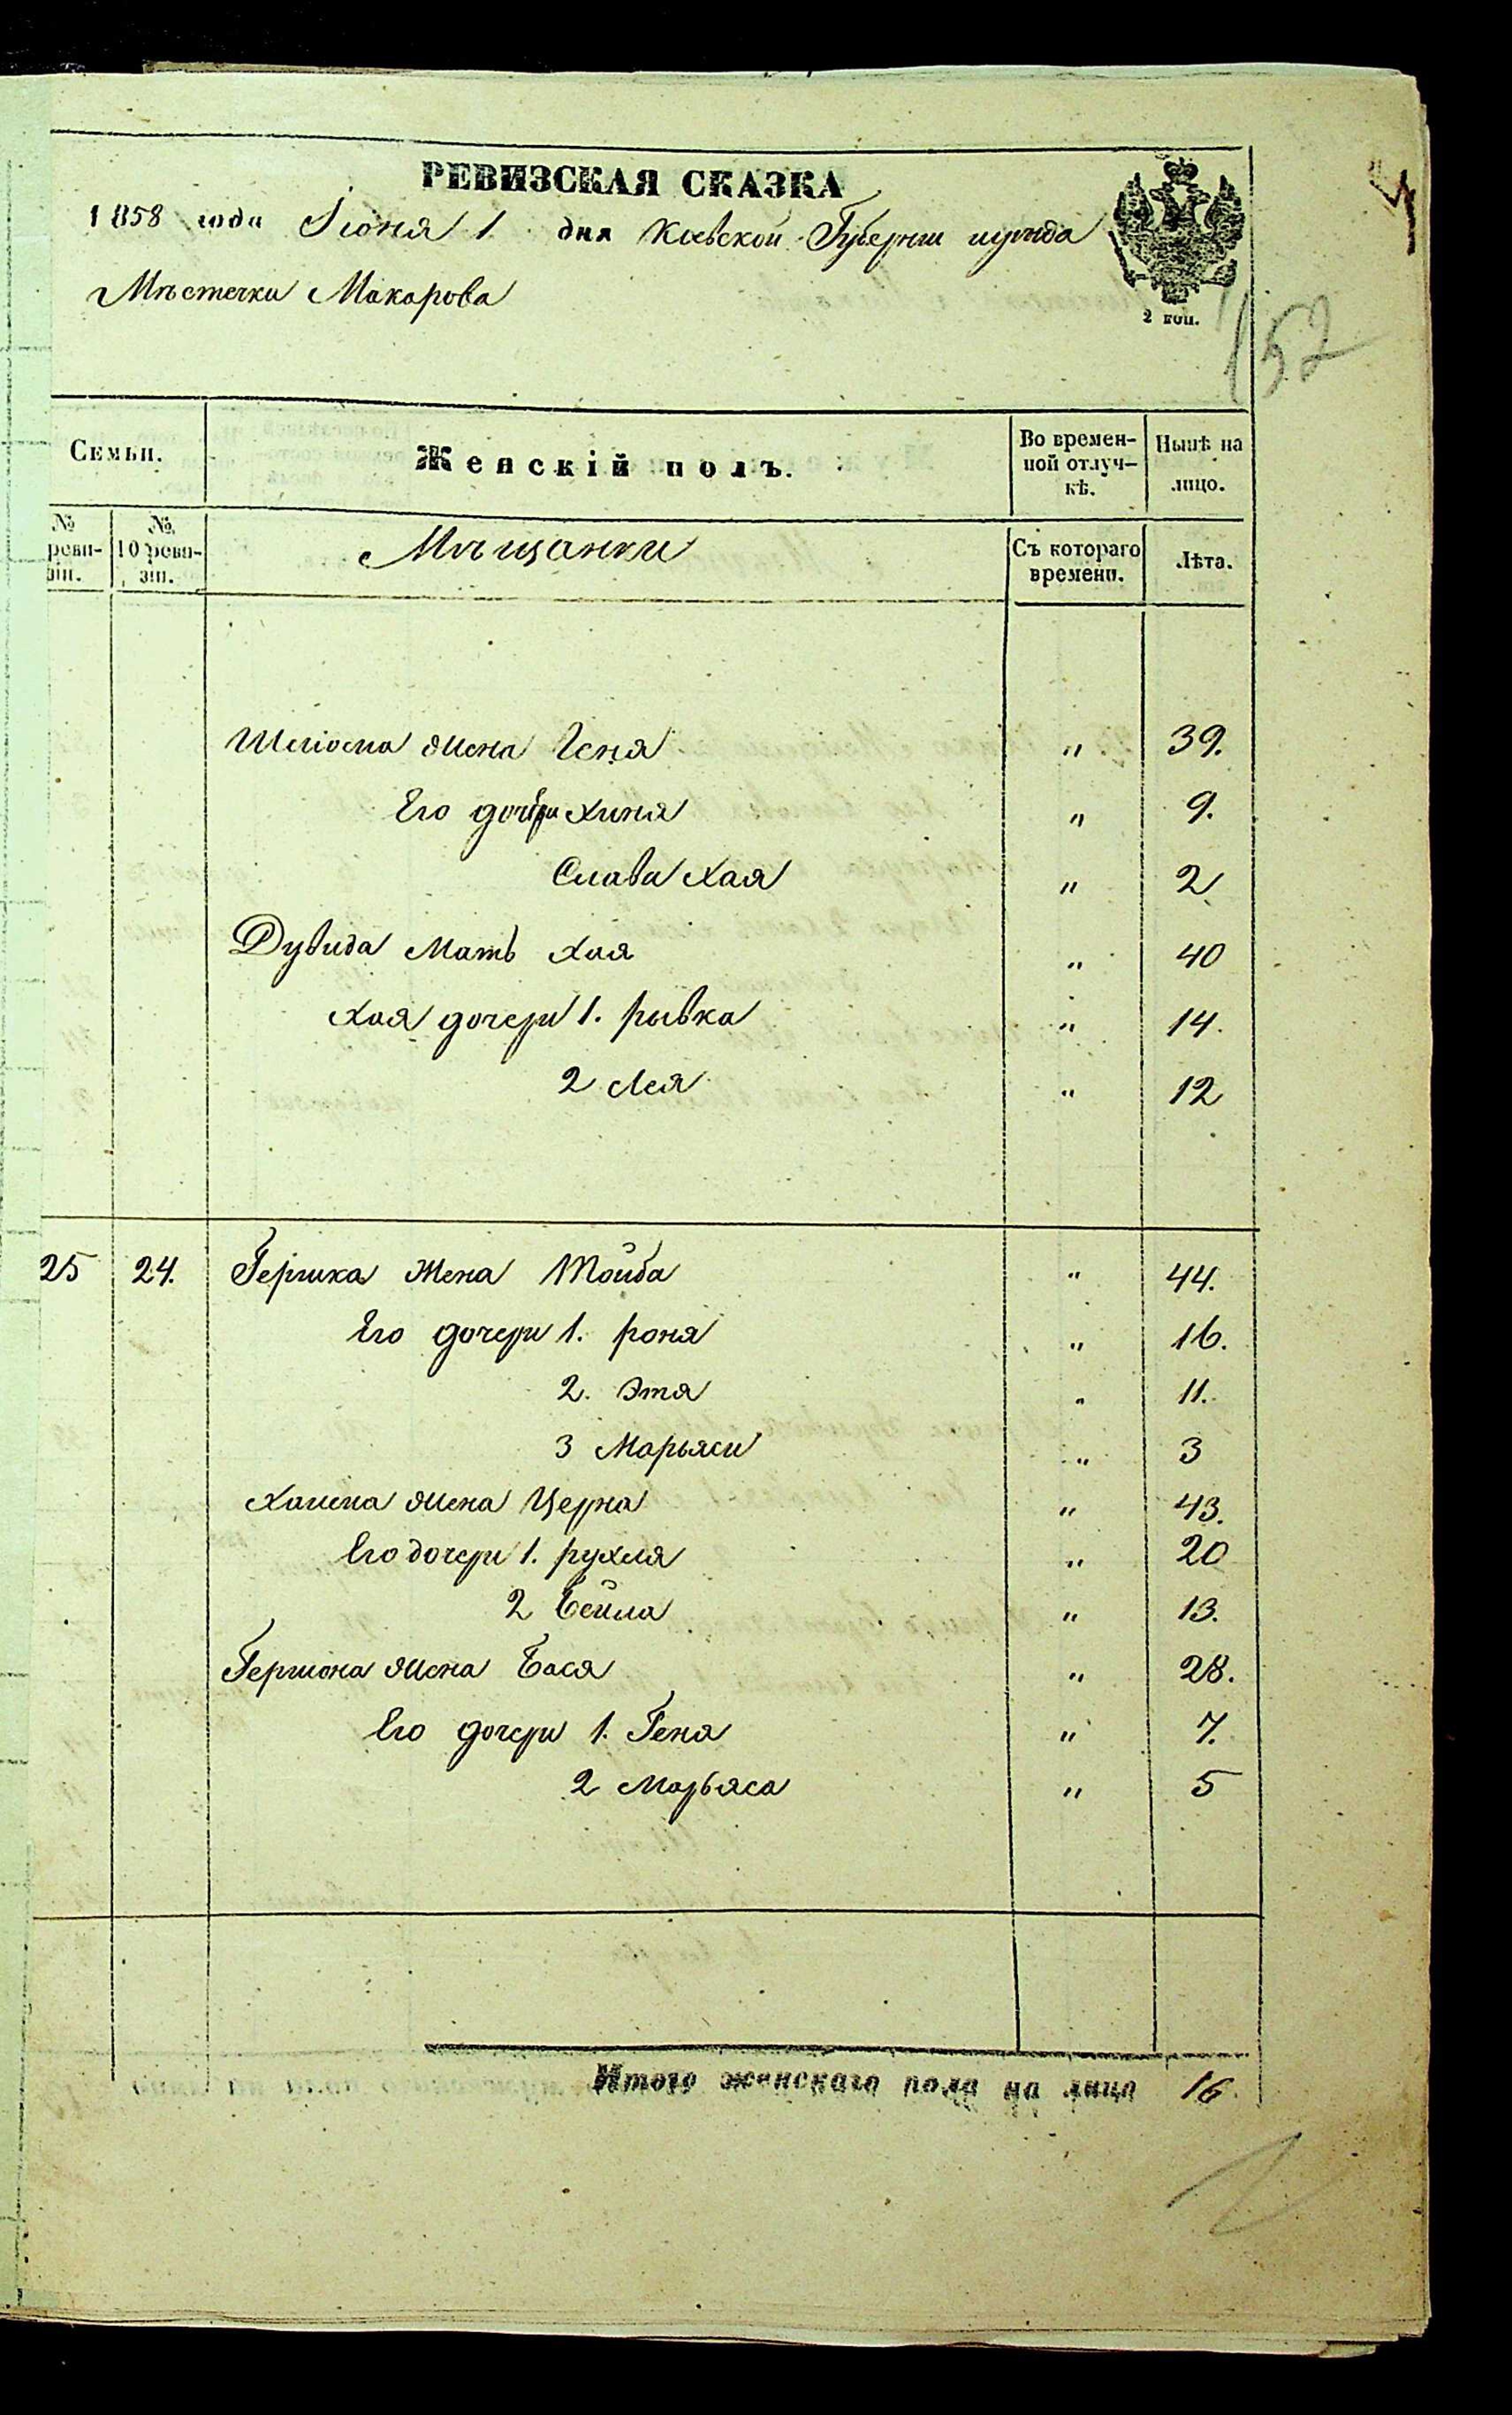 РЕВИЗСКАЯ СКАЗКА
1858 года Іюня 1 дня Кіевской Губерніи уѣзда
Мѣстечка Макарова
2 коп.
152
Семьи. Женскій полъ. Во времен-ной отлуч-кѣ. Нынѣ на лицо.
№ реви-зіи. № 10 реви-зіи. Мѣщанки Съ котораго времени. Лѣта.
жена Геня " 39.
Его дочери Хиня " 9.
Слава Хая " 2
Дувида Мать Хая " 40
Хая дочери 1. рывка " 14.
2 Лея " 12
25 24. Гершка Жена Тойба " 44.
Его дочери 1. роня " 16.
2. Этя " 11.
3 Марьяси " 3
Хаима жена Черна " 43.
Его дочери 1. рухля " 20
2 Бейла " 13.
Гершона жена Бася " 28.
Его дочери 1. Геня " 7.
2 Марьяса " 5
Итого женскаго пола на лицо 16.